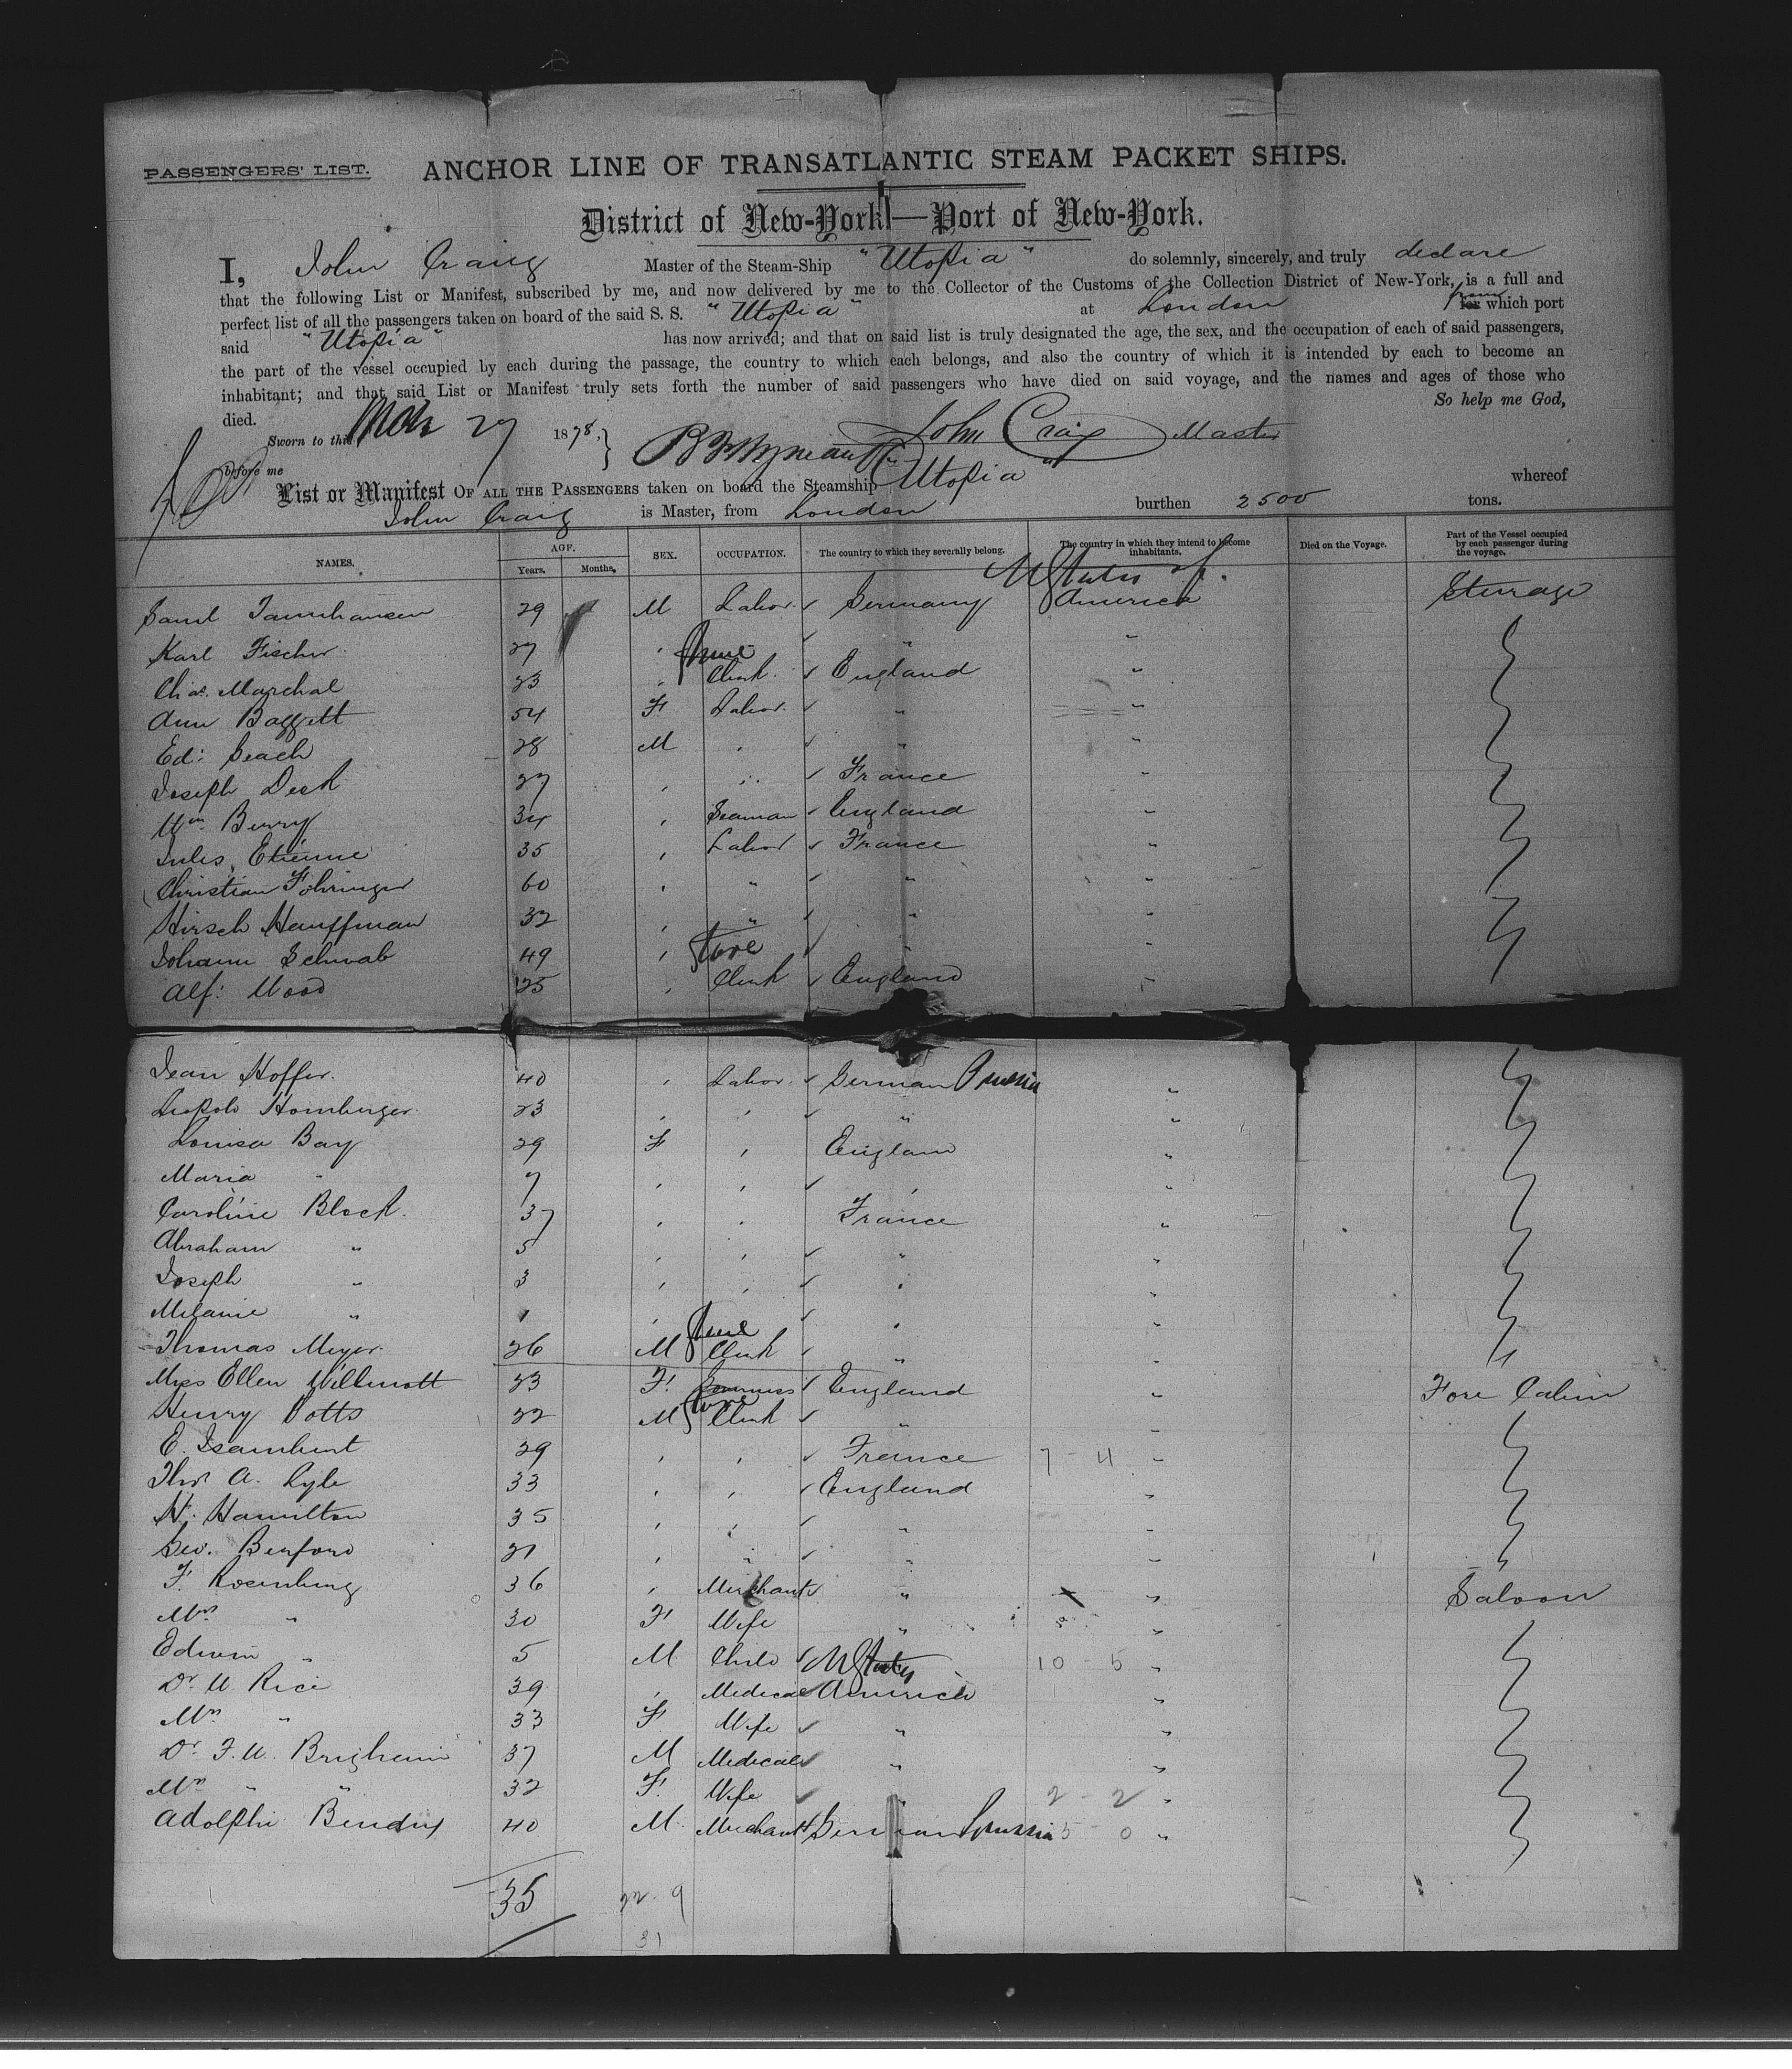 PASSENGERS' LIST. ANCHOR LINE OF TRANSATLANTIC STEAM PACKET SHIPS.
District of New-York—Port of New-York.
I, John Craig Master of the Steam-Ship "Utopia" do solemnly, sincerely, and truly declare
that the following List or Manifest, subscribed by me, and now delivered by me to the Collector of the Customs of the Collection District of New-York, is a full and
perfect list of all the passengers taken on board of the said S. S. "Utopia" at London from which port
said "Utopia" has now arrived; and that on said list is truly designated the age, the sex, and the occupation of each of said passengers,
the part of the vessel occupied by each during the passage, the country to which each belongs, and also the country of which it is intended by each to become an
inhabitant; and that said List or Manifest truly sets forth the number of said passengers who have died on said voyage, and the names and ages of those who
died. So help me God,
Sworn to this 27 1878. John Craig Master
before me "Utopia"
List or Manifest OF ALL THE PASSENGERS taken on board the Steamship whereof
John Craig is Master, from London burthen 2500 tons.
NAMES. AGE. Years. Months. SEX. OCCUPATION. The country to which they severally belong. The country in which they intend to become inhabitants. Died on the Voyage. Part of the Vessel occupied by each passenger during the voyage.
Saml Tannhausen 29 M Labor. Germany U States of America Steerage
Karl Fischer 27 " "
Chas. Marchal 23 Clerk. England "
Ann Baggett 54 F Labor. " "
Ed: Beach 28 M " " "
Joseph Desk 27 " " France "
Wm. Berry 34 " Seaman England "
Jules Etienne 35 " Labor France "
Christian Fohringer 60 " " " "
Hirsch Hauffman 32 " " " "
Johann Schwab 49 " " "
Alf: Wood 25 " Clerk England "
Jean Hoffer. 40 " Labor. German Prussia "
Leopold Homburger 23 " " " "
Louisa Bay 29 F " England "
Maria " 7 " " " "
Caroline Block. 37 " " France "
Abraham " 5 " " " "
Joseph " 3 " " " "
Melanie " 1 " " "
Thomas Meyer. 26 M Clerk " "
Miss Ellen Willmott 23 F. England " Fore Cabin
Henry Potts 22 M Clerk " "
E. Isambert 29 " " France 7 - 4 "
Thos A. Lyle 33 " " England "
H. Hamilton 35 " " " "
Geo. Benford 21 " " " "
F. Rosenberg 36 " Merchant " " Saloon
Mrs " 30 F Wife " "
Edwin " 5 M Child U States 10 - 5 "
Dr. W. Rice 39 " Medical America "
Mrs " 33 F Wife " "
Dr. F. W. Brigham 37 M Medical " "
Mrs " " 32 F. Wife " 2 - 2 "
Adolphe Bendix 40 M. Merchant German Prussia 5 0 "
35 22 9
31